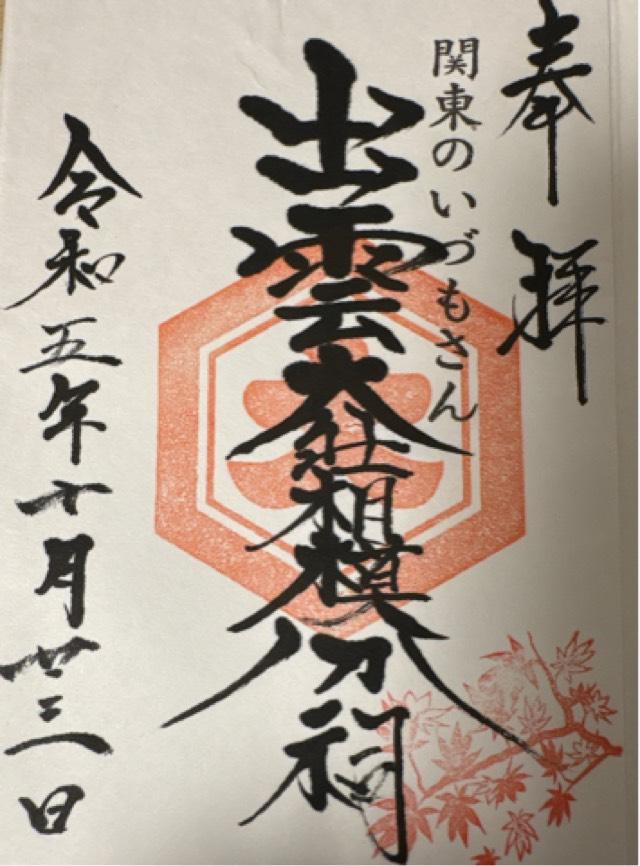 奉拝
関東のいづもさん
出雲大社相模分祠
令和五年十月廿三日